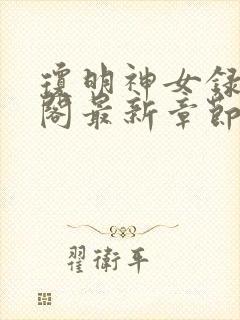 瓊明神女録
閣最新章節
翟衛平